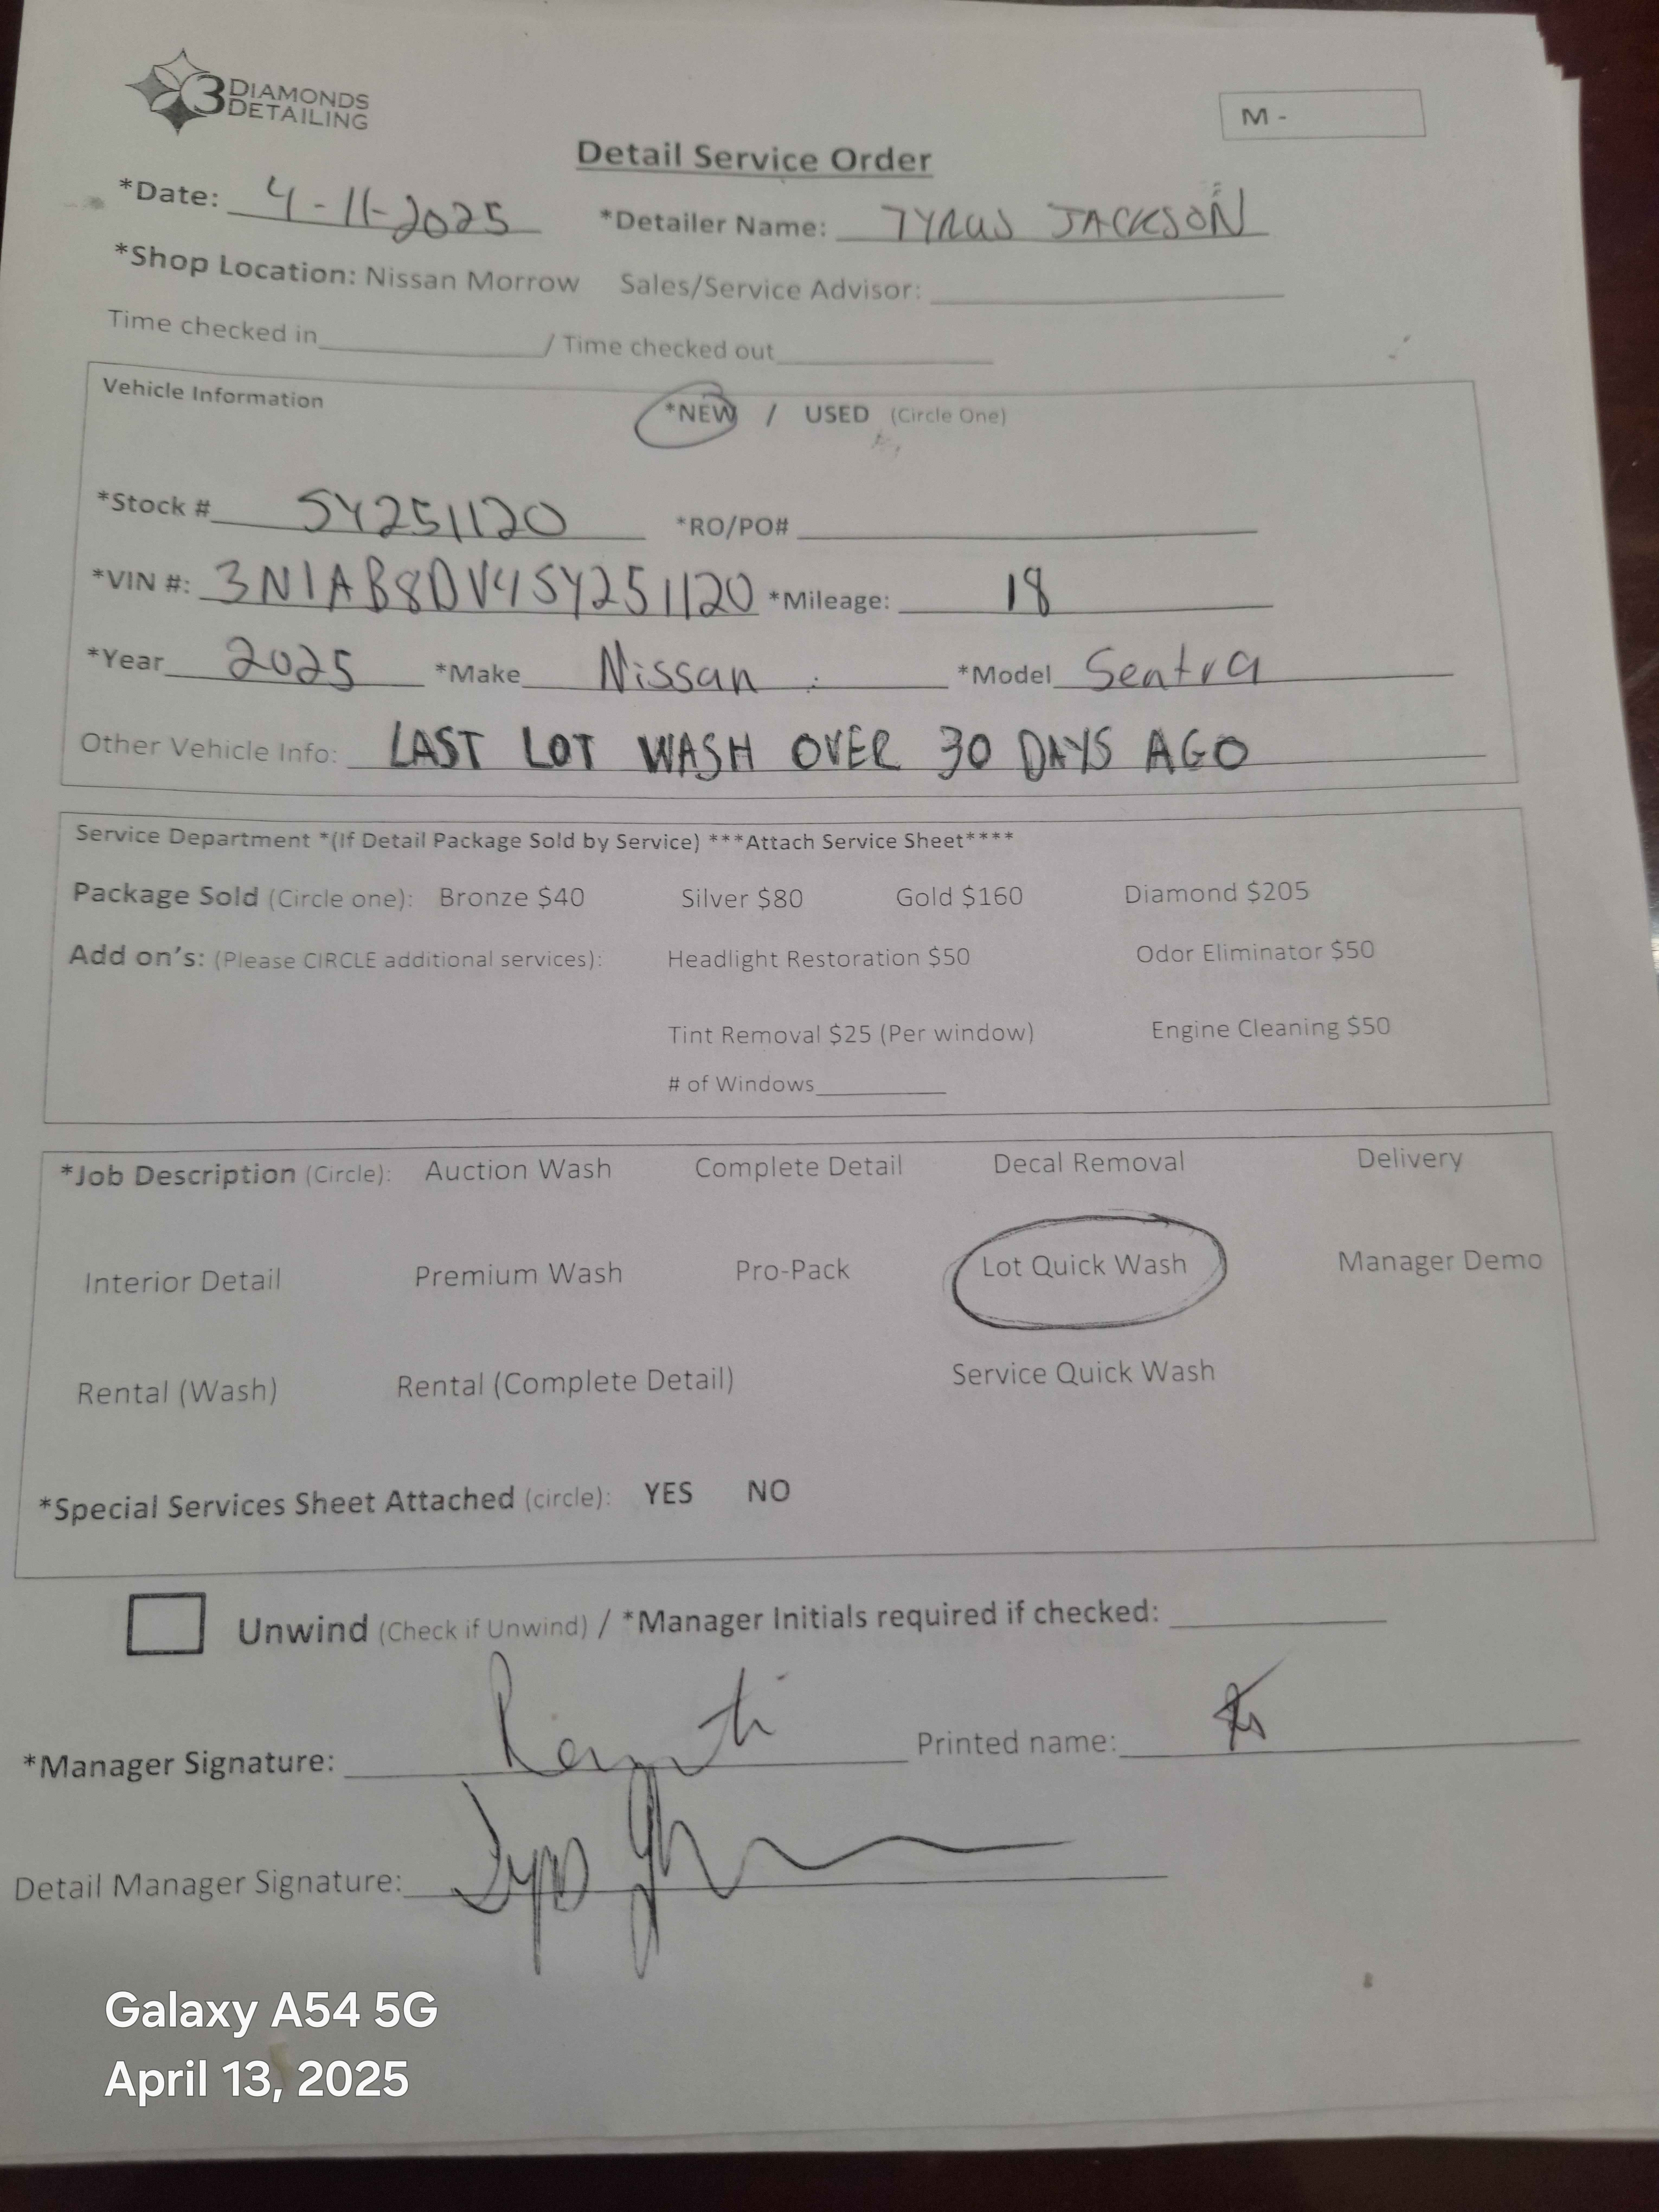 3 DIAMONDS
DETAILING
M -
Detail Service Order
*Date: 4-11-2025 *Detailer Name: TYRUS JACKSON
*Shop Location: Nissan Morrow Sales/Service Advisor:
Time checked in / Time checked out
Vehicle Information
*NEW / USED (Circle One)
*Stock # SY251120 *RO/PO#
*VIN #: 3N1AB8DV4SY251120 *Mileage: 18
*Year 2025 *Make Nissan *Model Sentra
Other Vehicle Info: LAST LOT WASH OVER 30 DAYS AGO
Service Department *(If Detail Package Sold by Service) ***Attach Service Sheet****
Package Sold (Circle one): Bronze $40 Silver $80 Gold $160 Diamond $205
Add on's: (Please CIRCLE additional services): Headlight Restoration $50 Odor Eliminator $50
Tint Removal $25 (Per window) Engine Cleaning $50
# of Windows
*Job Description (Circle): Auction Wash Complete Detail Decal Removal Delivery
Interior Detail Premium Wash Pro-Pack Lot Quick Wash Manager Demo
Rental (Wash) Rental (Complete Detail) Service Quick Wash
*Special Services Sheet Attached (circle): YES NO
Unwind (Check if Unwind) / *Manager Initials required if checked:
*Manager Signature: Printed name:
Detail Manager Signature:
Galaxy A54 5G
April 13, 2025